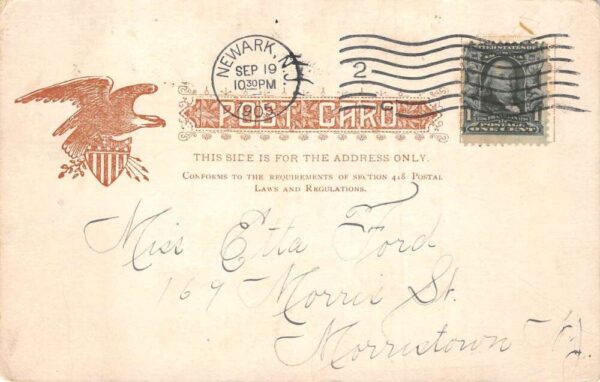 NEWARK, N.J.
SEP 19
10 30 PM
1905
2
UNITED STATES OF
POSTAGE
1 ONE CENT
POST CARD
THIS SIDE IS FOR THE ADDRESS ONLY.
CONFORMS TO THE REQUIREMENTS OF SECTION 418 POSTAL
LAWS AND REGULATIONS.
Miss Etta Ford
169 Morris St.
Morristown N.J.